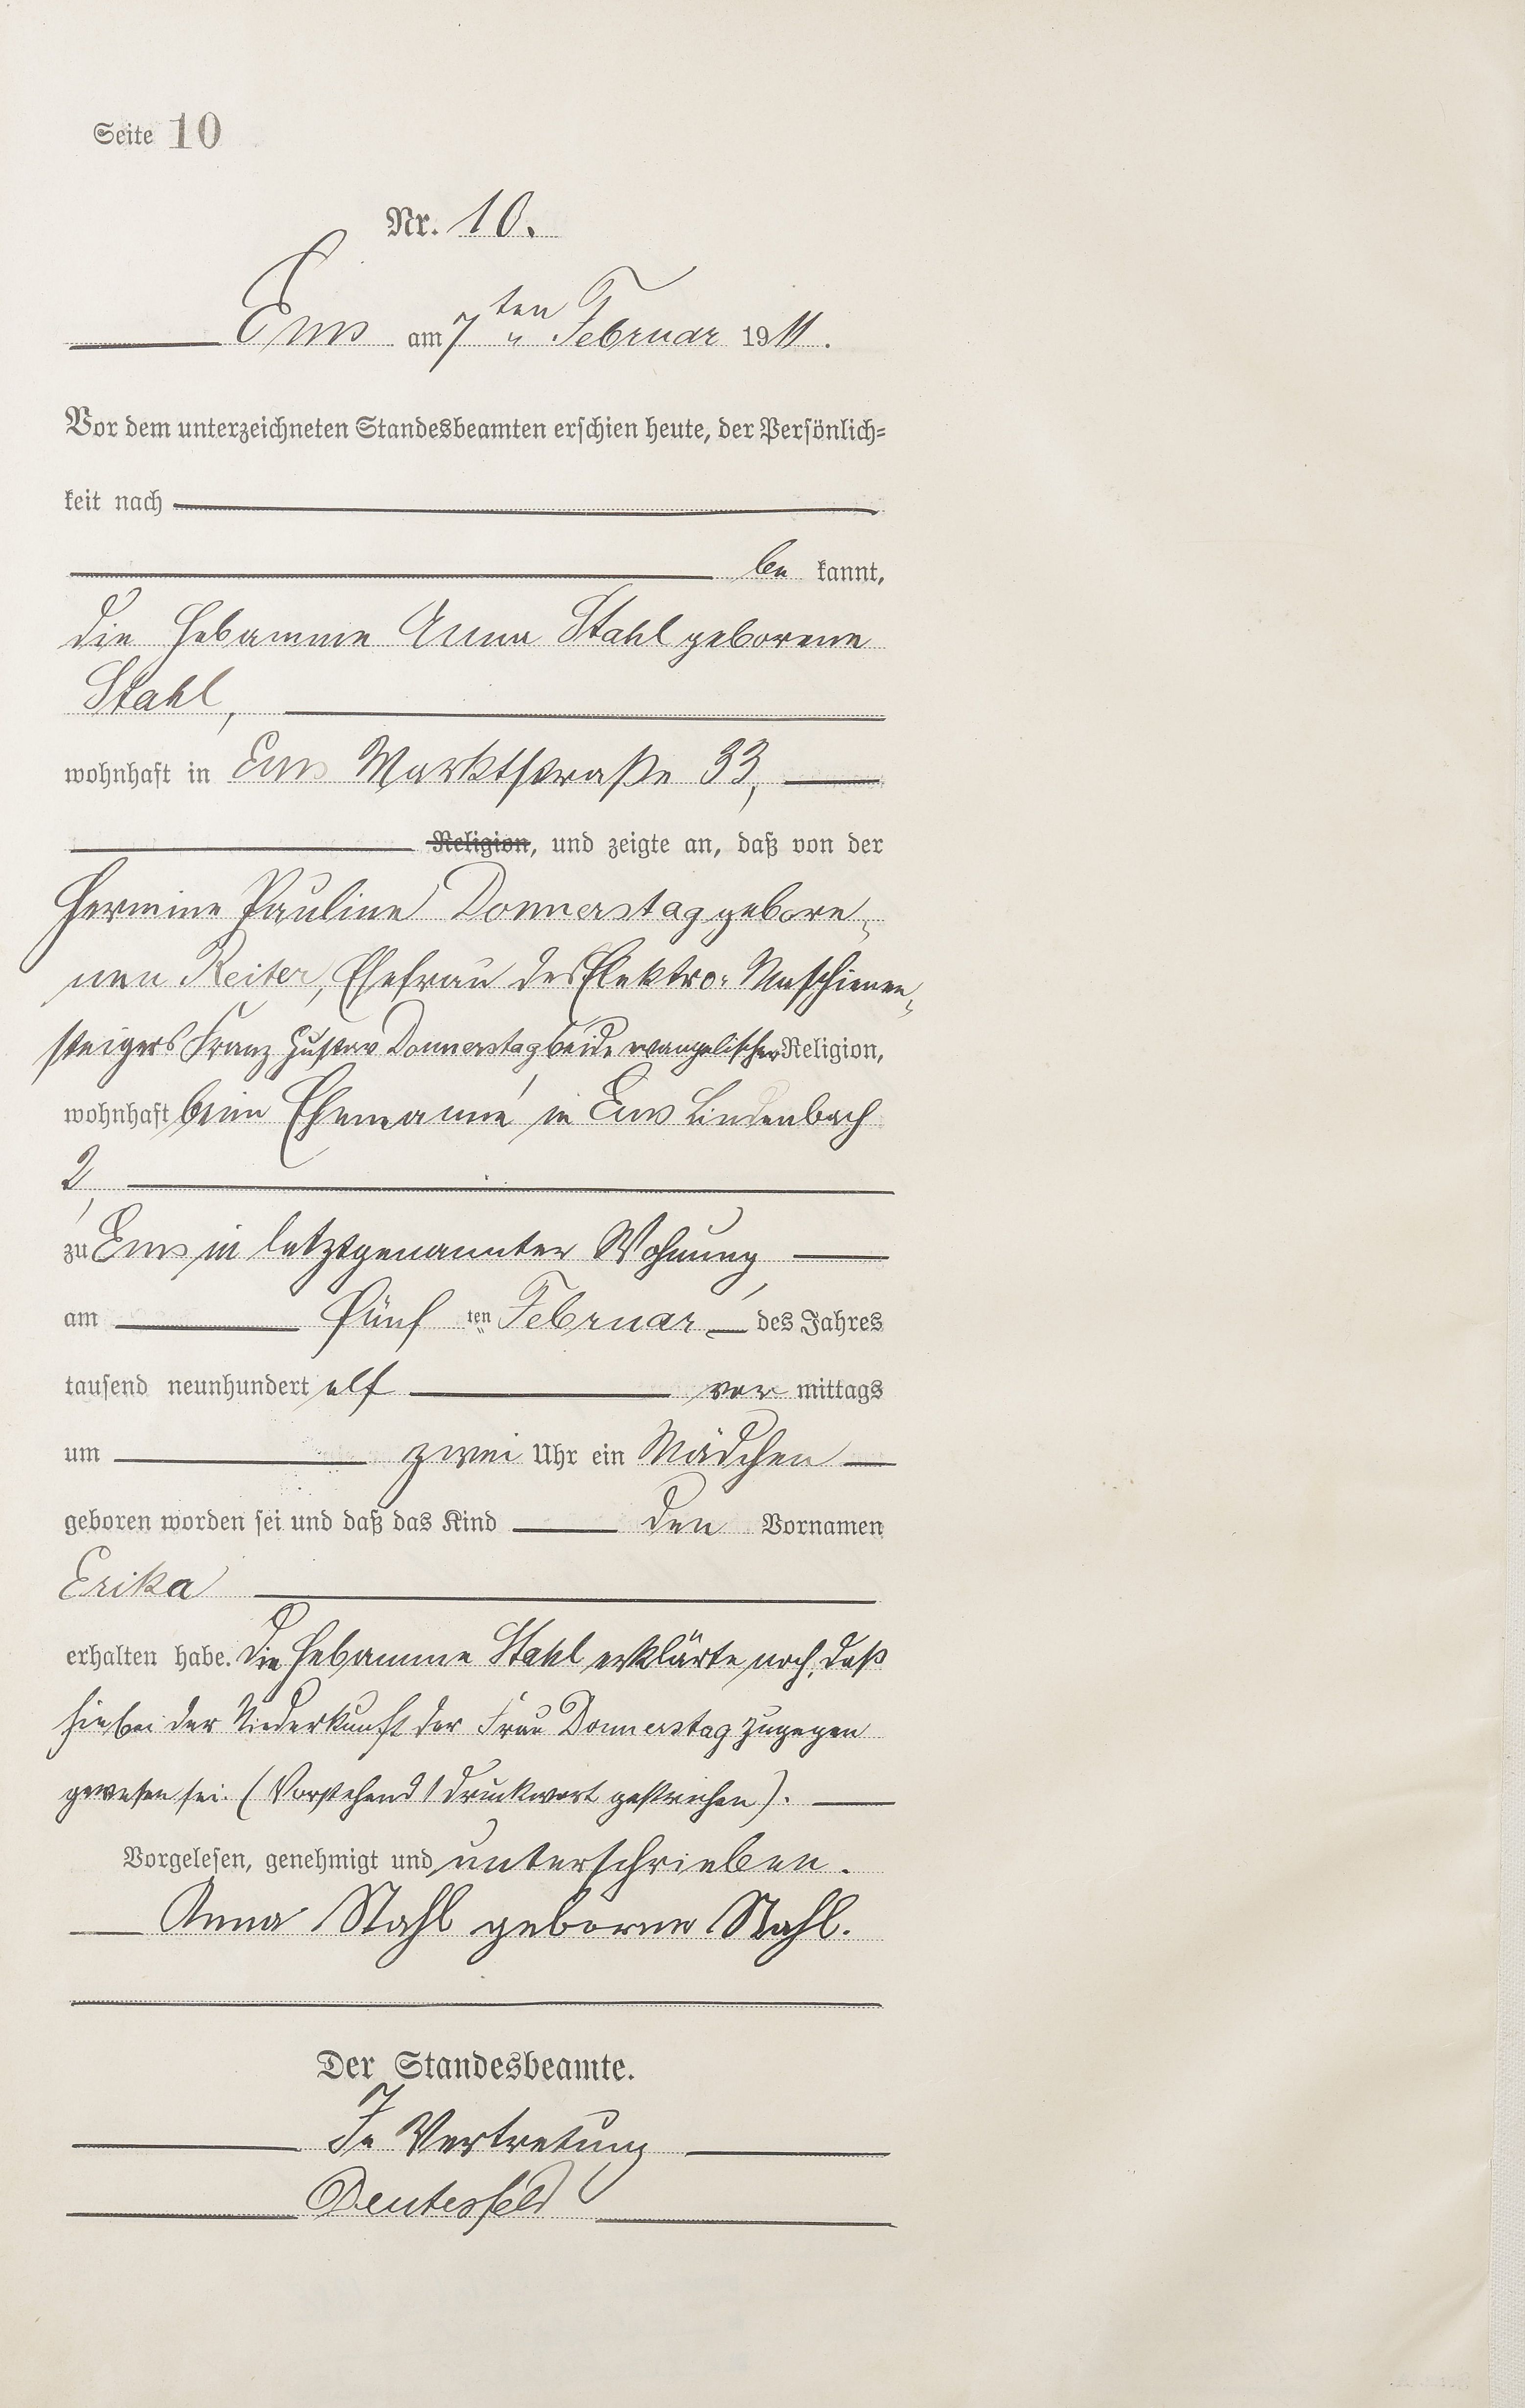 Seite 10
Nr. 10.
Ems am 7ten Februar 1911.
Vor dem unterzeichneten Standesbeamten erschien heute, der Persönlich-
keit nach
be kannt,
die Hebamme Anna Stahl geborene
Stahl,
wohnhaft in Ems Marktstraße 33,
Religion, und zeigte an, daß von der
Hermine Pauline Donnerstag gebore-
nen Reiter, Ehefrau des Elektro-Maschienen-
steigers Franz Gustav Donnerstag beide evangelischer Religion,
wohnhaft beim Ehemanne in Ems Lindenbach
2,
zu Ems in letztgenannter Wohnung,
am fünf ten Februar des Jahres
tausend neunhundert elf vor mittags
um zwei Uhr ein Mädchen
geboren worden sei und daß das Kind den Vornamen
Erika
erhalten habe. Die Hebamme Stahl erklärte noch, daß
sie bei der Niederkunft der Frau Donnerstag zugegen
gewesen sei. (Vorstehend 1 Druckwort gestrichen).
Vorgelesen, genehmigt und unterschrieben.
Anna Stahl geborene Stahl.
Der Standesbeamte.
In Vertretung